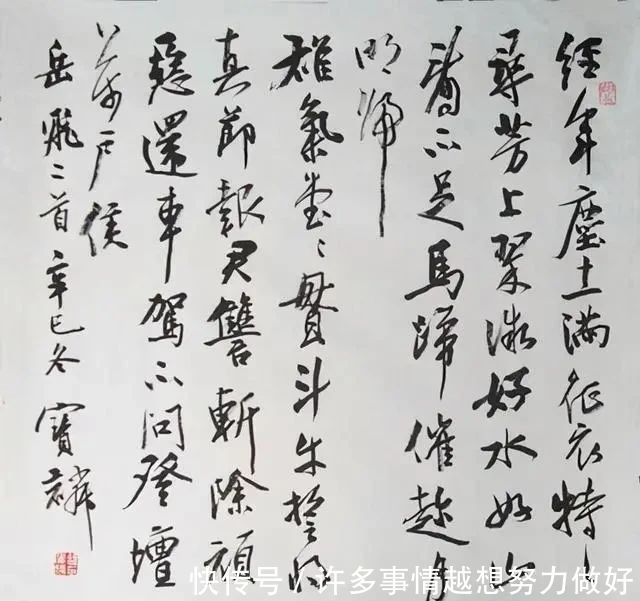 經年塵土滿征衣特〻
尋芳上翠微好水好山
看不足馬蹄催趁月
明歸
雄氣堂〻貫斗牛誓將
真節報君讐斬除頑
惡還車駕不問登壇
萬戶侯
岳飛二首辛巳冬寶麟
快传号/许多事情越想努力做好